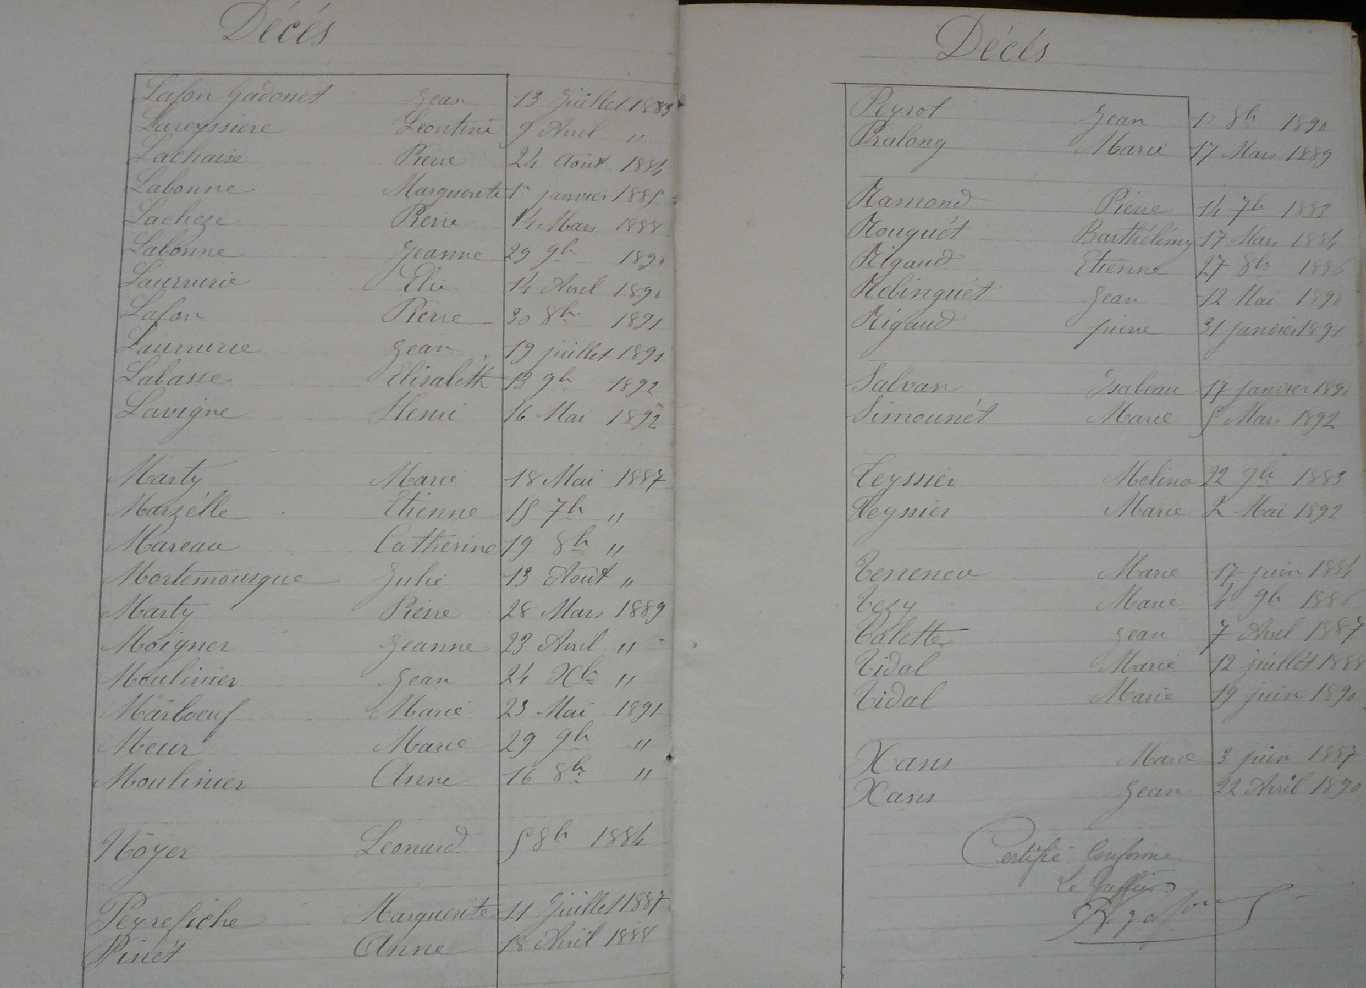 Décés
Lafon Gadonet Jean 13 Juillet 1883
Lareyssiere Leontine 9 Avril "
Lachaise Pierre 24 Août 1884
Labonne Marguerite 1r janvier 1885
Lacheze Pierre 14 Mars 1888
Labonne Jeanne 29 9b 1890
Laurrerie Elie 14 Avril 1890
Lafon Pierre 30 8b 1891
Laurrerie Jean 19 juillet 1891
Labasse Elisabeth 13 9b 1892
Lavigne Henri 16 Mai 1892
Marty Marie 18 Mai 1887
Marzélle Etienne 15 7b "
Mareau Catherine 19 8b "
Mortemousque Julie 13 Août "
Marty Pierre 28 Mars 1889
Moigner Jeanne 23 Avril "
Moulinier Jean 24 Xb "
Marboeuf Marie 23 Mai 1891
Meur Marie 29 9b "
Moulinier Anne 16 8b "
Noyer Leonard 5 8b 1884
Peyrefiche Marguerite 11 Juillet 1887
Pinét Anne 18 Avril 1888
Décés
Peyrot Jean 8b 1890
Pralong Marie 17 Mars 1889
Ramond Pierre 14 7b 1883
Rouquét Barthélémy 17 Mars 1884
Rigaud Etienne 27 8b 1886
Rebinguét Jean 12 Mai 1890
Rigaud pierre 31 janvier 1891
Salvan Isabeau 17 janvier 1890
Simounét Marie 5 Mars 1892
Teyssier Melina 22 9b 1883
Teyssier Marie 2 Mai 1892
Marie 17 juin 1884
Vezy Marie 9b 1886
Valette Jean 7 Avril 1887
Vidal Marie 12 juillet 1888
Vidal Marie 19 juin 1890
Xans Marie 3 juin 1887
Xans Jean 22 Avril 1890
Certifié Conforme
Le Greffier